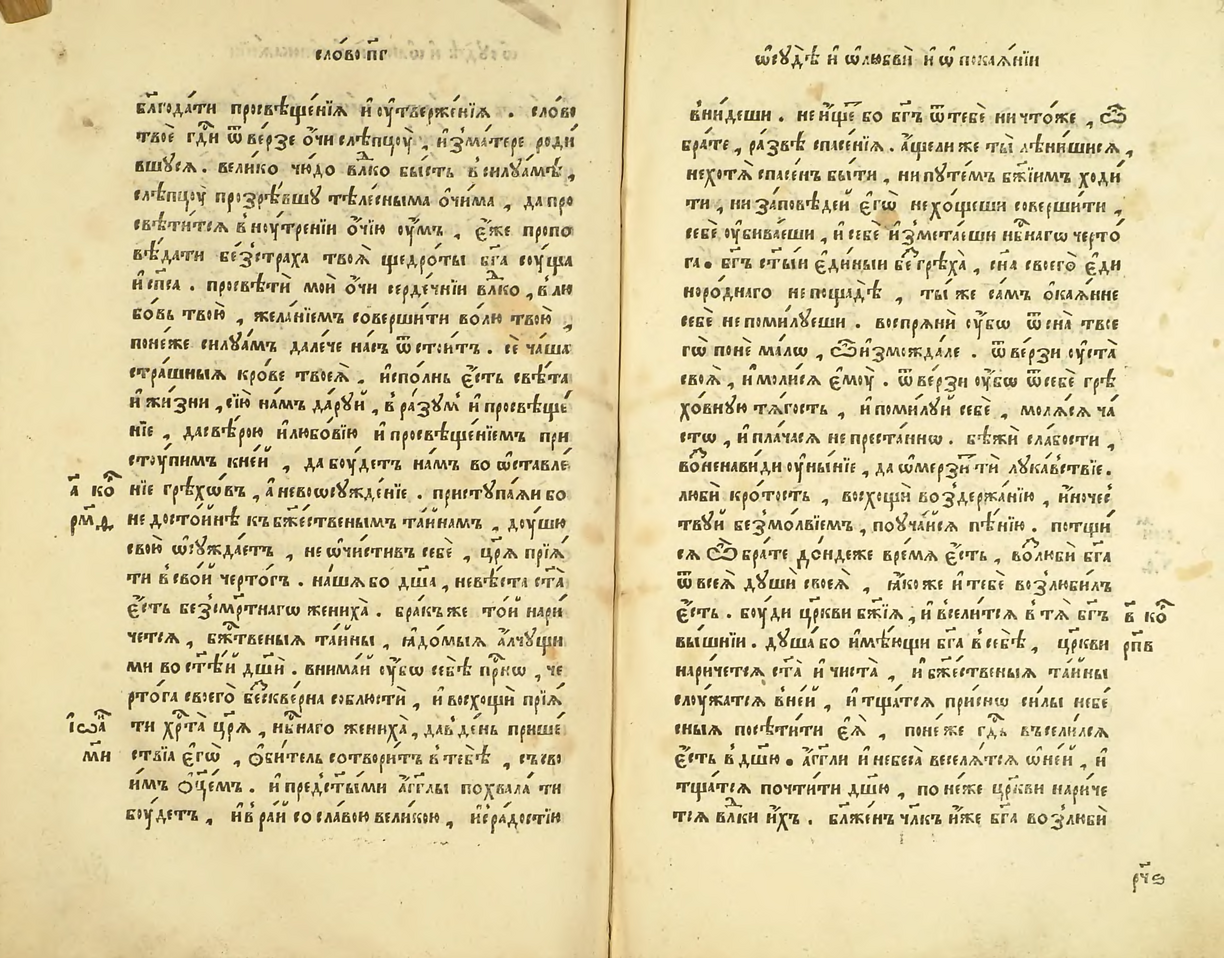 сло́во п҃г
бл҃года́ти просвѣще́нїѧ и҆ ᲂу҆твержє́нїѧ . сло́во
твоѐ гдⷭ҇и ѿве́рзе ѻ҆́чи слѣпцоу̀ , и҆зма́тере роди́
вшꙋсѧ . вели́ко чю́до влⷣко бы́сть в силꙋа́мѣ ,
слѣпцоу̀ прозрѣ́вшꙋ тѣле́сныма ѻ҆чи́ма , да про
свѣти́тсѧ в ноу́трєнїи ѻ҆́чїю ᲂу҆́мъ , є҆́же пропо
вѣ́дати бе́зстраха твоѧ̀ щедро́ты бг҃а соу́ща
и҆ сп҃са . просвѣтѝ моѝ ѻ҆́чи серде́чнїи влⷣко , в лю
бо́вь твою̀ , жела́нїемъ соверши́ти во́лю твою̀ ,
поне́же силꙋа́мъ дале́че на́съ ѿстои́тъ . сѐ ча́ша
стра́шныѧ кро́ве твоеѧ̀ . и҆спо́лнь є҆́сть свѣ́та
и҆ жи́зни , сїю̀ на́мъ да́рꙋй , в ра́зꙋмъ и҆ просвѣще́
нїе , да свѣ́рою и҆ любо́вїю и҆ просвѣще́нїемъ при
сто́упимъ кне́й , да боу́детъ на́мъ во ѡ҆ставле́
нїе грѣхо́въ , а҆ не во ѡ҆сꙋжде́нїе . пристꙋпа́ѧи бо
недосто́йнѣ къ бж҃е́ственымъ та́йнамъ , до́ушю
свою̀ ѡ҆сꙋжда́етъ , не ѡ҆чи́стивъ себѐ , цр҃ѧ̀ прїѧ́
ти в сво́й черто́гъ . на́ша бо дш҃а , невѣ́ста ст҃а̀
є҆́сть безсме́ртнагѡ жениха̀ . бра́къ же то́й нари
че́тсѧ , бж҃е́ственыѧ та́йны , ꙗ҆до́мыѧ а҆́лчꙋщи
ми во ст҃ѣ́й дш҃и . внима́й ᲂу҆́бѡ себѣ̀ при́снѡ , че
рто́га своего̀ бескве́рна соблюстѝ , и҆ восхощѝ прїѧ́
ти хрⷭ҇та̀ цр҃ѧ̀ , нбⷭ҇наго жениха̀ , да в де́нь прише́
ствїа є҆гѡ̀ , ѻ҆би́тель сотвори́тъ в тебѣ̀ , съ сво
и́мъ ѻ҆ц҃е́мъ . и҆ пред ст҃ы́ми а҆́гг҃лы похвала̀ ти
боу́детъ , и҆ в ра́й со сла́вою вели́кою , и҆ с ра́достїю
а҃ коⷬ҇
рм҃д
і҆ѡаⷩ҇
м҃и
ѡ҆ сꙋдѣ̀ и҆ ѡ҆ любвѝ и҆ ѡ҆ покаѧ́нїи
вни́деши . не и҆́щет бо бг҃ъ ѿ тебѐ ничто́же , ѽ
бра́те , ра́звѣ спасе́нїѧ . а҆́ще ли же ты̀ лѣни́шисѧ ,
не хотѧ̀ спасе́нъ бы́ти , ни пꙋте́мъ бж҃їимъ ходи́
ти , ни за́повѣдей є҆гѡ̀ не хо́щеши соверши́ти ,
себѐ ᲂу҆бива́еши , и҆ себѐ и҆зме́таеши нбⷭ҇нагѡ черто́
га . бг҃ъ ст҃ы́и є҆ди́ныи безгрѣ́ха , сн҃а своего̀ є҆ди
норо́днаго не пощадѣ̀ , ты́ же са́мъ ѻ҆каѧ́нне
себѐ не поми́лꙋеши . воспрѧнѝ ᲂу҆́бѡ ѿ сна̀ твое
гѡ̀ понѐ ма́лѡ , ѽ и҆змо́ждале . ѿве́рзи ᲂу҆ста̀
своѧ̀ , и҆ моли́сѧ є҆моу̀ . ѿве́рзи ᲂу҆́бѡ ѿ себѐ грѣ
хо́внꙋю тѧ́гость , и҆ поми́лꙋй себѐ , молѧ́сѧ ча́
стѡ , и҆ пла́часѧ непреста́ннѡ . бѣжѝ сла́бости ,
возненави́ди ᲂу҆ны́нїе , да ѡ҆мерзи́ ти лꙋка́вствїе .
любѝ кро́тость , восхощѝ воздержа́нїю , и҆ ночес
твꙋ́й безмо́лвїемъ , поуча́йсѧ пѣ́нїю . потщи́
сѧ ѽ бра́те до́ндеже вре́мѧ є҆́сть , возлюбѝ бг҃а
ѿ всеѧ̀ дꙋшѝ своеѧ̀ , ꙗ҆́коже и҆ тебѐ возлюби́лъ
є҆́сть . боу́ди цр҃кви бж҃їѧ , и҆ всели́тсѧ в тѧ̀ бг҃ъ
вы́шнїи . дꙋша́ бо и҆мѣ́ющи бг҃а в себѣ̀ , цр҃кви
нарече́тсѧ ст҃а̀ и҆ чиста̀ , и҆ бж҃е́ственыѧ та́йны
слоу́жатсѧ в не́й , и҆ тща́тсѧ при́снѡ си́лы небе́
сныѧ посѣти́ти є҆ѧ̀ , поне́же гдⷭ҇ь всели́лсѧ
є҆́сть в дш҃ю . а҆́гг҃ли и҆ небеса̀ веселѧ́тсѧ ѡ҆ не́й , и҆
тща́тсѧ почти́ти дш҃ю , поне́же цр҃кви нариче́
тсѧ влⷣки и҆́хъ . бл҃же́нъ чл҃къ и҆́же бг҃а возлюбѝ
в҃ коⷬ҇
рп҃в
рч҃ѕ